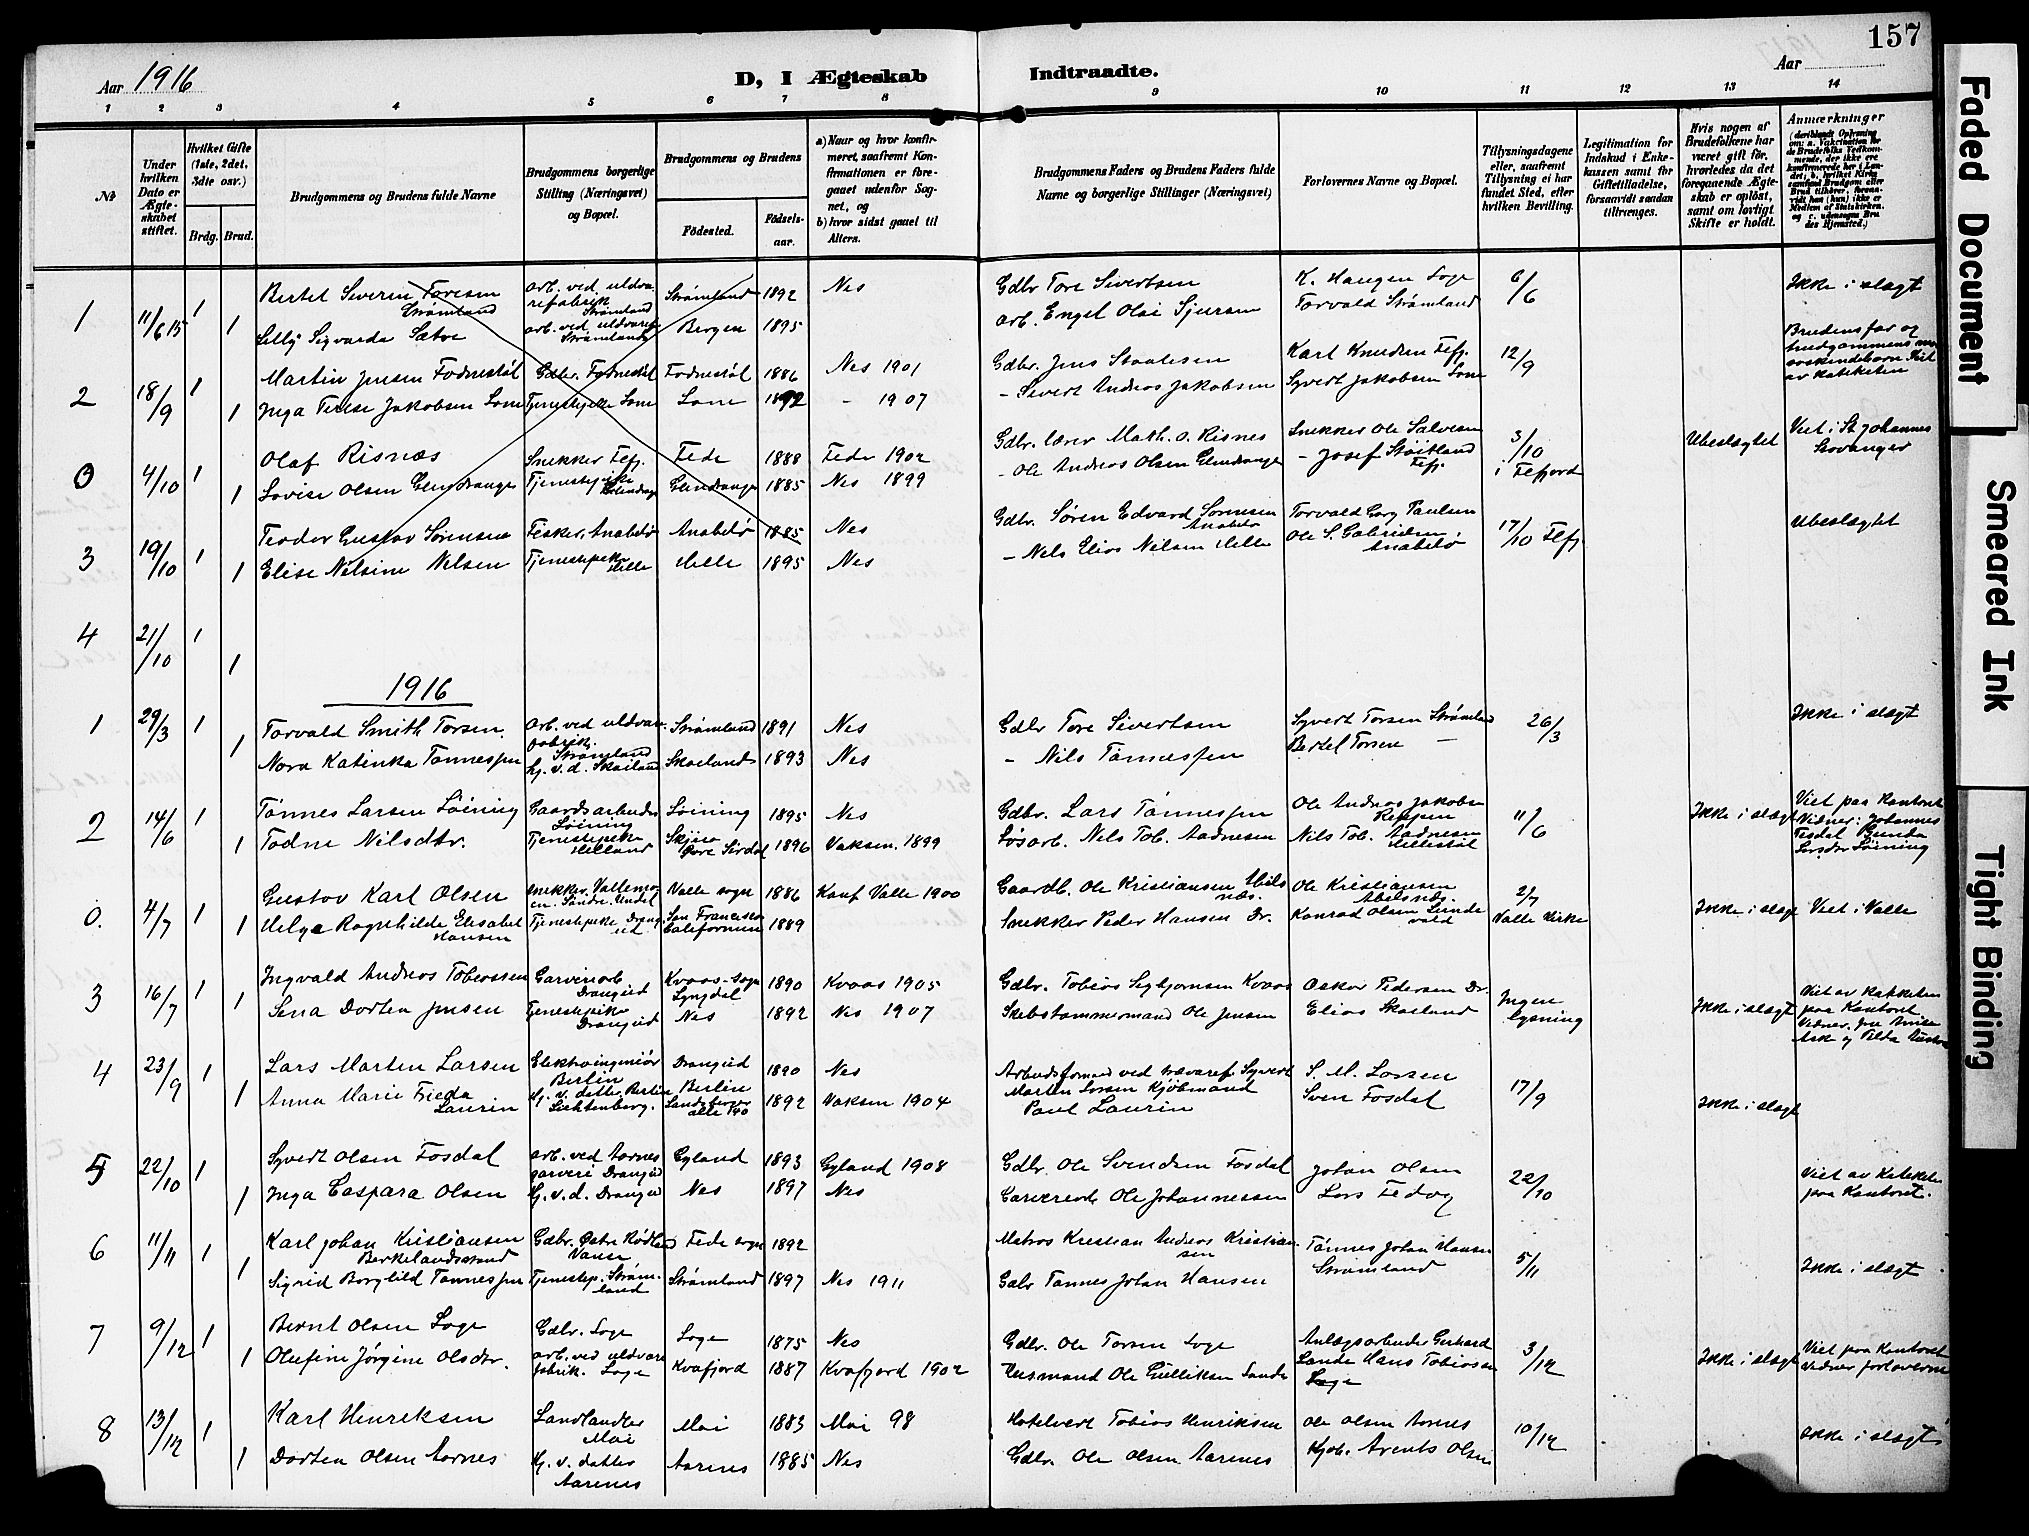 157
Aar 1916
D, I Ægteskab Indtraadte.
Aar
1 2 3 4 5 6 7 8 9 10 11 12 13 14
№
Under hvilken Dato er Ægteskabet stiftet.
Hvilket Gifte (1ste, 2det, 3dte osv.)
Brdg. Brud.
Brudgommens og Brudens fulde Navne
Brudgommens borgerlige Stilling (Næringsvei) og Bopæl.
Brudgommens og Brudens
Fødested. Fødselsaar.
a) Naar og hvor konfirmeret, saafremt Konfirmationen er foregaaet udenfor Sognet, og
b) hvor sidst gaaet til Alters.
Brudgommens Faders og Brudens Faders fulde Navne og borgerlige Stillinger (Næringsvei)
Forlovernes Navne og Bopæl.
Tillysningsdagene eller, saafremt Tillysning ei har fundet Sted, efter hvilken Bevilling.
Legitimation for Indskud i Enkekassen samt for Giftetilladelse, forsaavidt saadan tiltrænges.
Hvis nogen af Brudefolkene har været gift før, hvorledes da det foregaaende Ægteskab er opløst, samt om lovligt Skifte er holdt.
Anmærkninger
1 11/6 15 1 Bertel Severin Toresen Strømland arb. ved uldvarefabrik Strømland Strømland 1892 Nes Gdbr Tore Sivertsen K. Haugen Loge 6/6 Ikke i slegt
1 Lilly Sigvarda Sætre arb. ved uldvaref. Strømland Bergen 1895 arb. Engel Olai Sjursen Torvald Strømland
2 18/9 1 Martin Jensen Fodnestøl Gdbr. Fodnestøl Fodnestøl 1886 Nes 1901 Gdbr. Jens Staalesen Karl Knudsen Flfj. 12/9 Brudens far og brudgommens
1 Inga Terese Jakobsen Lone Tjenestepike Lone Lone 1892 - 1907 - Sivert Andreas Jakobsen Syvert Jakobsen Lone av kateketen
0 4/10 1 Olaf Risnæs Snekker Flfj. Fede 1888 Fede 1902 Gdbr. lærer Math. O. Risnes Snekker Ole Salvesen 3/10 Ubeslegtet Viet i St Johannes Stavanger
1 Lovise Olsen Glendrange Tjenestepike Glendrange Glendrange 1885 Nes 1899 - Ole Andreas Olsen Glendrange - Josef Støitland Flfj. i Flfjord
3 19/10 1 Teodor Gustav Sørensen Fisker, Anabeløe Anabeløe 1885 Nes Gdbr. Søren Edvard Sørensen Anabeløe Torvald Georg Paulsen 17/10 Flfj Ubeslegtet
1 Elise Nilsine Nilsen Tjenestepike Helle Helle 1895 Nes - Nils Elias Nilsen Helle Ole S. Gabrielsen. Anabeløe
4 21/10 1
1
1916
1 29/3 1 Torvald Smith Torsen. arb. ved uldvarefabrik. Strømland Strømland 1891 Nes Gdbr Tore Sivertsen Syvert Torsen Strømland 26/3 Ikke i slegt
1 Nora Katinka Tønnessen hj. v. d. Skailand Skailand 1893 Nes - Nils Tønnessen Bertel Torsen -
2 14/6 1 Tønnes Larsen Løining Gaardsarbeider Løining Løining 1895 Nes Gdbr. Lars Tønnessen Ole Andreas Jakobsen 11/6 Ikke i slegt Viet paa Kontoret
1 Todne Nilsdtr. Tjenestepike Helland Øvre Sirdal 1896 Vaksen. 1899 Løsarb. Nils Tob. Aadnesen Nils Tob. Aadnesen Vidner: Johannes Løining
0. 4/7 1 Gustav Karl Olsen snekker. Søndre Undal Valle sogn 1886 Konf Valle 1900 Gaardb. Ole Kristiansen Ole Kristiansen Abelsnes. 2/7 Ikke i slegt Viet i Valle
1 Helga Ragnhilde Elisabet Hansen Tjenestepike Drangeid San Francisco Californien 1889 Snekker Peder Hansen Dr. Konrad Olsen Valle Kirke
3 16/7 1 Ingvald Andreas Tobiassen Garveriarb. Drangeid Kvaas-sogn Lyngdal 1890 Kvaas 1905 Gdbr. Tobias Sigbjørnsen Kvaas Oskar Pedersen Dr. Ingen lysning Ikke i slegt Viet av kateketen paa Kontoret
1 Lena Dorten Jensen Tjenestepike Drangeid Nes 1892 Nes 1907 Skibstømmermand Ole Jensen Elias Skailand
4 23/9 1 Lars Martin Larsen Elektroingeniør Berlin Drangeid 1890 Nes Arbeidsformand ved træfaref. Syvert Martin Larsen Kjøbmand S. M. Larsen 17/9
1 Anna Marie Frieda Laurin Hj. v. datter Berlin Lichtenberg. Berlin Landsberger alle 140 1892 Vaksen 1904 Paul Laurin Sven Fosdal Ikke i slegt
5 22/10 1 Syvert Olsen Fosdal arb. ved Aarnes garveri Drangeid Gyland 1893 Gyland 1908 Gdbr. Ole Svendsen Fosdal Johan Olsen 22/10 Viet av Kateketen paa Kontoret.
1 Inga Caspara Olsen Hj. v. d. Drangeid Nes 1897 Nes Garveriarb Ole Johannessen Lars Fedog
6 11/11 1 Karl Johan Kristiansen Berkelandsstrand Gdbr. Østre Rødland Vanse Fede sogn 1892 Matros Kristian Andreas Kristiansen Tønnes Johan Hansen Strømland 5/11 Ikke i slegt
1 Sigrid Borghild Tønnessen Tjenestep. Strømland Strømland 1897 Nes 1911 Gdbr Tønnes Johan Hansen
7 9/12 1 Bernt Olsen Loge Gdbr. Loge Loge 1875 Nes Gdbr. Ole Torsen Loge Anlægsarbeider Gerhard Lande Hans Tobiassen Loge 3/12 Ikke i slegt Viet paa Kontoret Vidner forloverne
1 Olufine Jørgine Olsdtr. arb. ved uldvarefabrik. Loge Kvafjord 1887 Kvafjord 1902 Husmand Ole Gulliksen Sande
8 13/12 1 Karl Henriksen Landhandler Moi Moi 1883 Moi 98 Hotelvert Tobias Henriksen Ole Olsen Aarnes 10/12 Ikke i slegt
1 Dorten Olsen Aarnes Hj. v. datter Aarenes Aarenes 1885 Nes Gdbr. Ole Olsen Aarenes Kjøb. Arents Olsen
Faded Document
Smeared Ink
Tight Binding